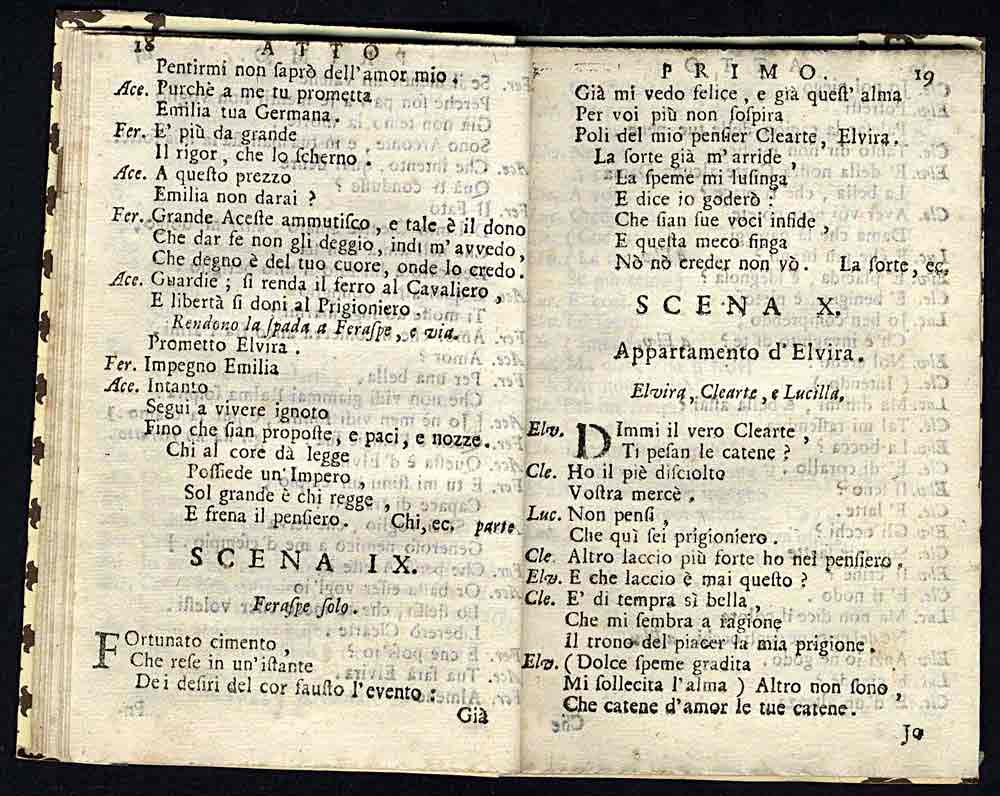 18 ATTO
Pentirmi non ſaprò dell'amor mio.
Ace. Purchè a me tu prometta
Emilia tua Germana.
Fer. E' più da grande
Il rigor, che lo ſcherno.
Ace. A queſto prezzo
Emilia non darai ?
Fer. Grande Aceſte ammutiſco, e tale è il dono
Che dar fe non gli deggio, indi m'avvedo,
Che degno è del tuo cuore, onde lo credo.
Ace. Guardie ; ſi renda il ferro al Cavaliero,
E libertà ſi doni al Prigioniero.
Rendono la ſpada a Feraſpe, e via.
Prometto Elvira.
Fer. Impegno Emilia
Ace. Intanto
Segui a vivere ignoto
Fino che ſian propoſte, e paci, e nozze.
Chi al core dà legge
Poſſiede un'Impero,
Sol grande è chi regge,
E frena il penſiero. Chi, ec. parte
SCENA IX.
Feraſpe ſolo.
FOrtunato cimento,
Che reſe in un'iſtante
Dei deſiri del cor fauſto l'evento :
Già
PRIMO. 19
Già mi vedo felice, e già queſt' alma
Per voi più non ſoſpira
Poli del mio penſier Clearte, Elvira.
La ſorte già m'arride,
La ſpeme mi luſinga
E dice io goderò :
Che ſian ſue voci infide,
E queſta meco finga
Nò nò creder non vò. La ſorte, ec.
SCENA X.
Appartamento d'Elvira.
Elvira, Clearte, e Lucilla.
Elv. DImmi il vero Clearte,
Ti peſan le catene ?
Cle. Ho il piè diſciolto
Voſtra mercè.
Luc. Non penſi,
Che quì ſei prigioniero.
Cle. Altro laccio più forte ho nel penſiero.
Elv. E che laccio è mai queſto ?
Cle. E' di tempra sì bella,
Che mi ſembra a ragione
Il trono del piacer la mia prigione.
Elv. ( Dolce ſpeme gradita
Mi ſollecita l'alma ) Altro non ſono,
Che catene d'amor le tue catene.
Jo